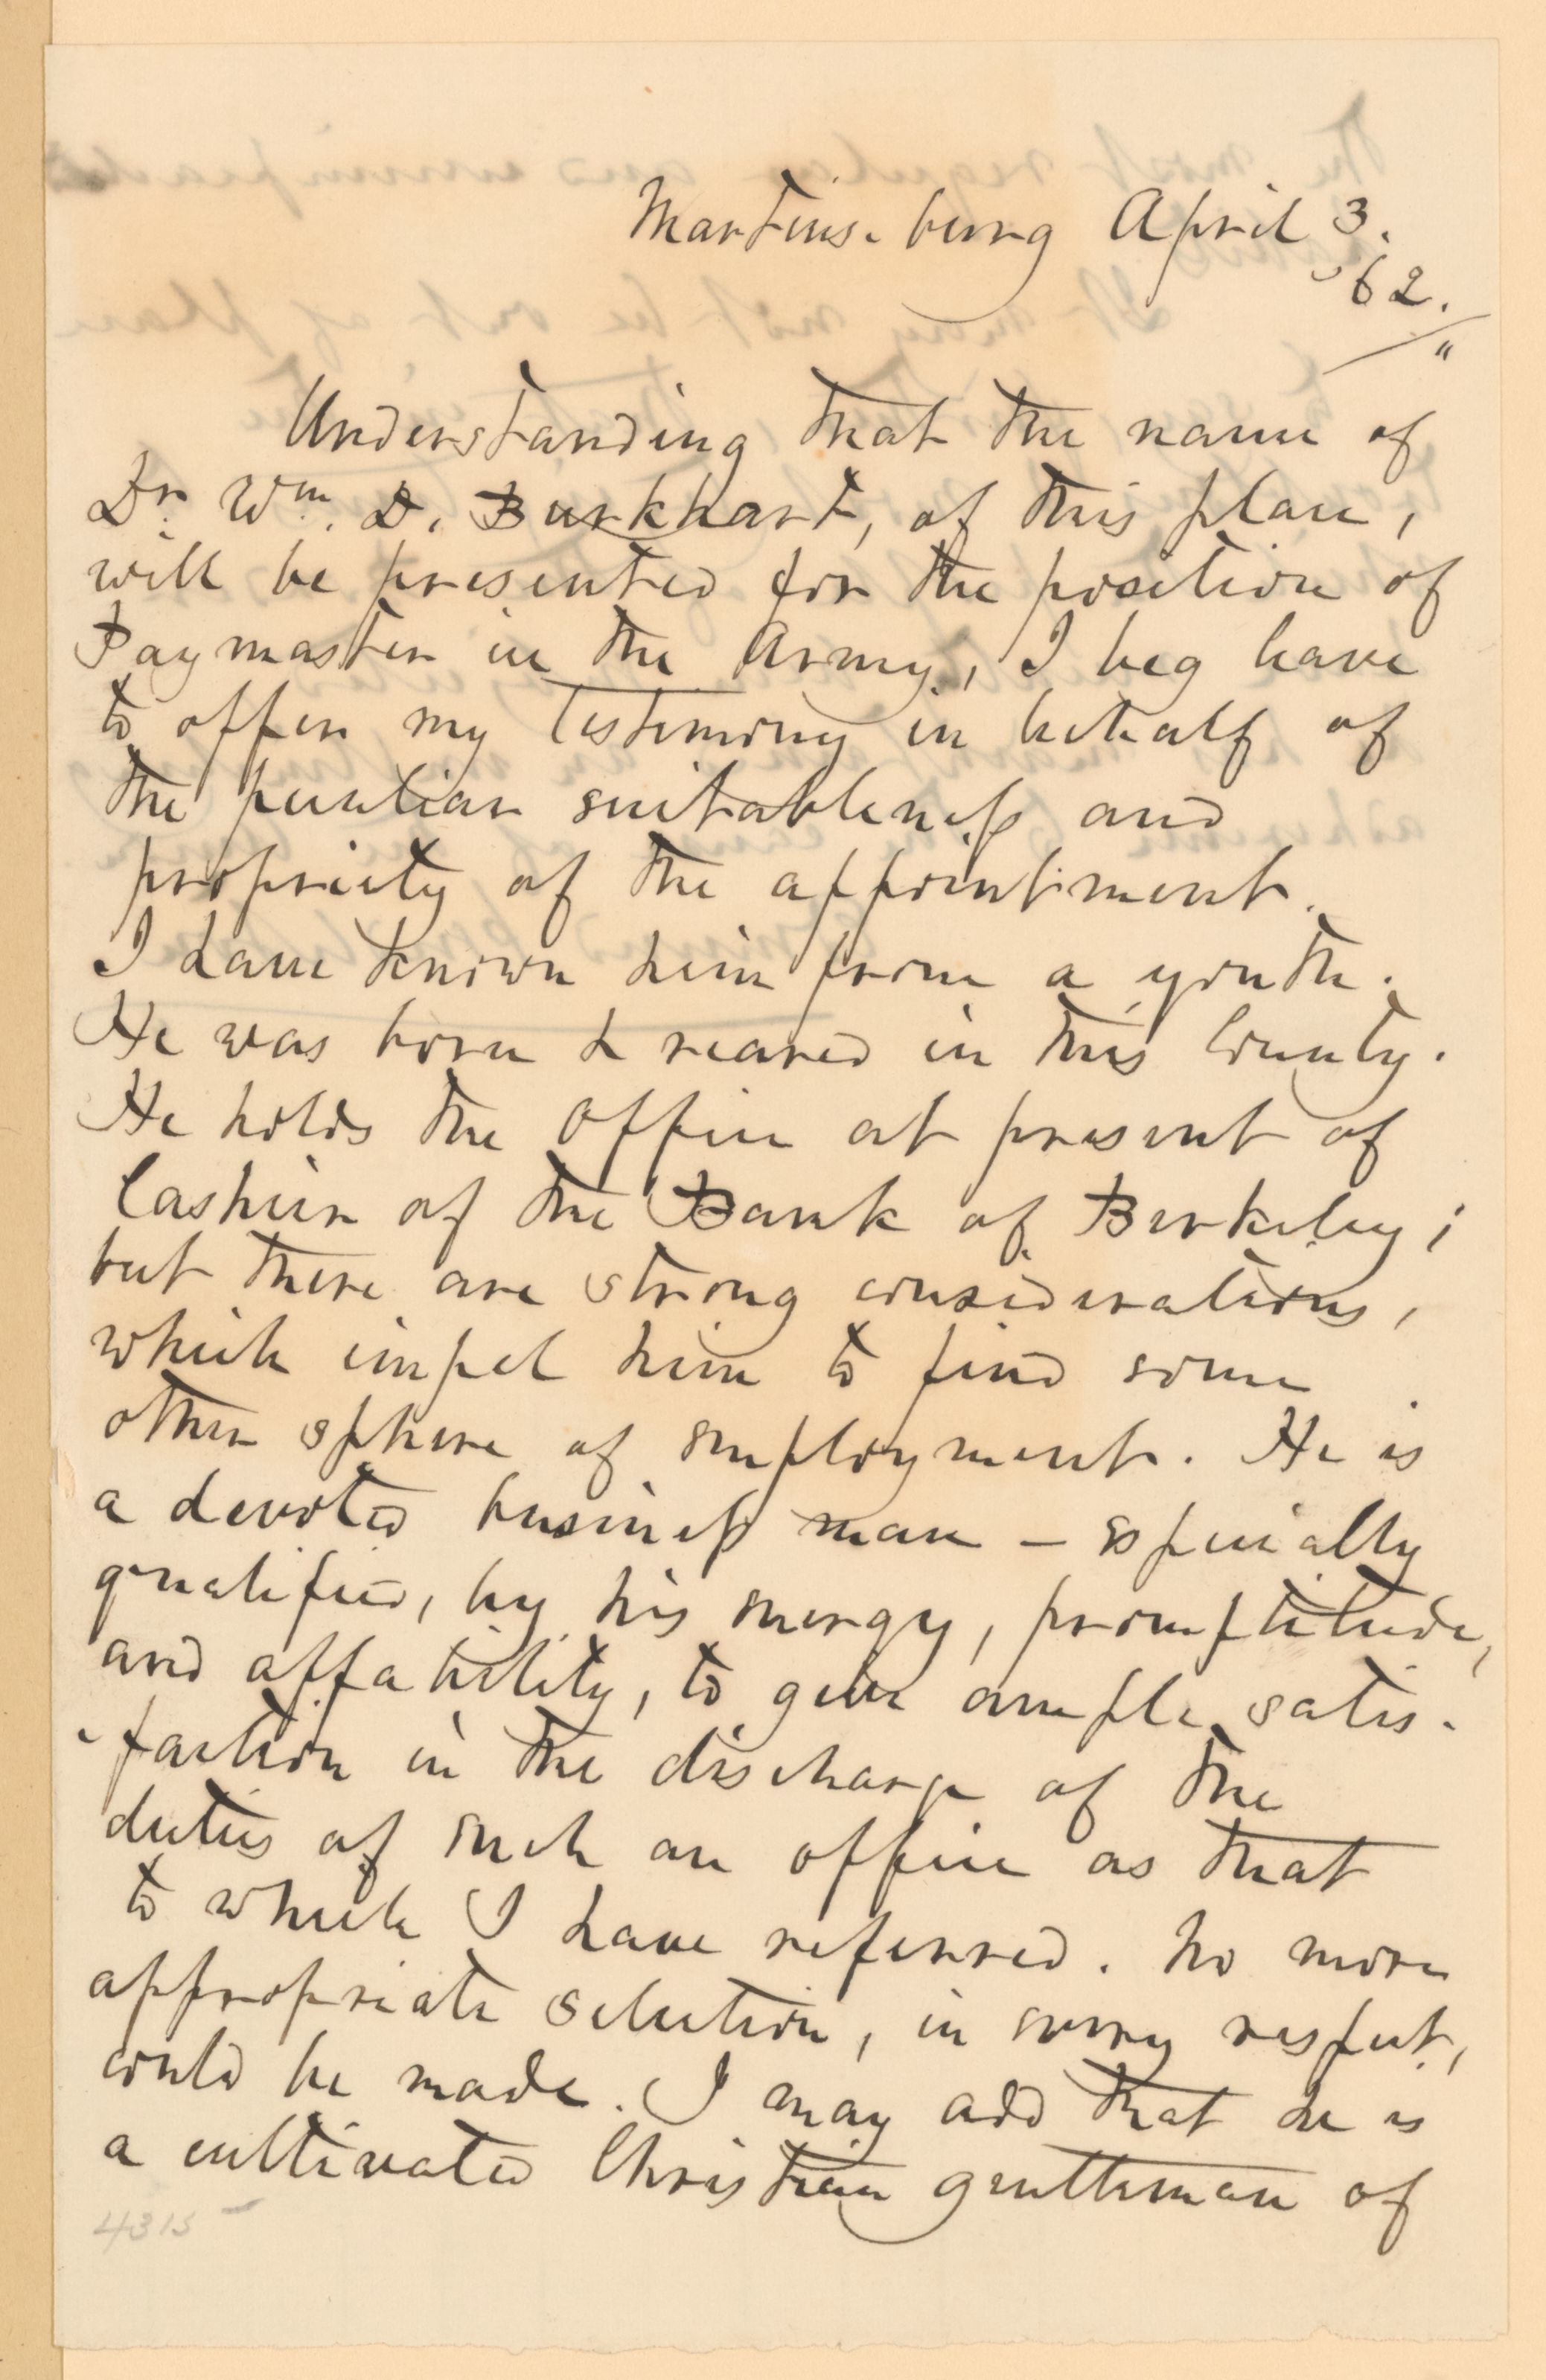 Martins-burg April 3.
'62.
Understanding that the name of
Dr. Wm. D. Burkhart, of this place,
will be presented for the position of
Paymaster in the Army, I beg leave
to offer my testimony in behalf of
the peculiar suitableness and
propriety of the appointment.
I have known him from a youth.
He was born & reared in this County.
He holds the office at present of
Cashier of the Bank of Berkeley;
but there are strong considerations,
which impel him to find some
other sphere of employment. He is
a devoted business man - especially
qualified, by his energy, promptitude,
and affability, to give ample satis-
-faction in the discharge of the
duties of such an office as that
to which I have referred. No more
appropriate selection, in every respect,
could be made. I may add that he is
a cultivated Christian gentleman of
4315